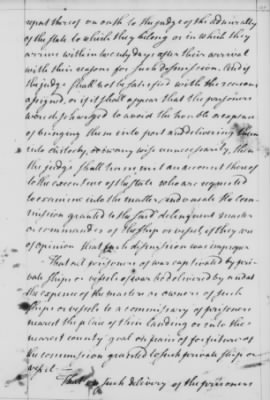 report thereof on oath to the judge of the admiralty
of the state to which they belong or in which they
arrive within twenty days after their arrival
with their reasons for such dismission. And if
the judge shall not be satisfied with the reasons
assigned, or if it shall appear that the prisoners
were discharged to avoid the trouble or expence
of bringing them into port and delivering them
into custody, or in any wise unnecessary, then
the judge shall transmit an account thereof
to the executive of the state who are requested
to examine into the matter, and vacate the com-
mission granted to the said delinquent master
or commander of the ship or vessel, if they are
of opinion that such dismission was improper
That all prisoners of war captivated by pri-
vate ships or vessels of war be delivered by and at
the expence of the master or owners of such
ships or vessels to a commissary of prisoners
nearest the place of their landing or into the
nearest county goal on pain of forfeiture of
the commission granted to such private ship or
vessel.
That on such delivery of the prisoners